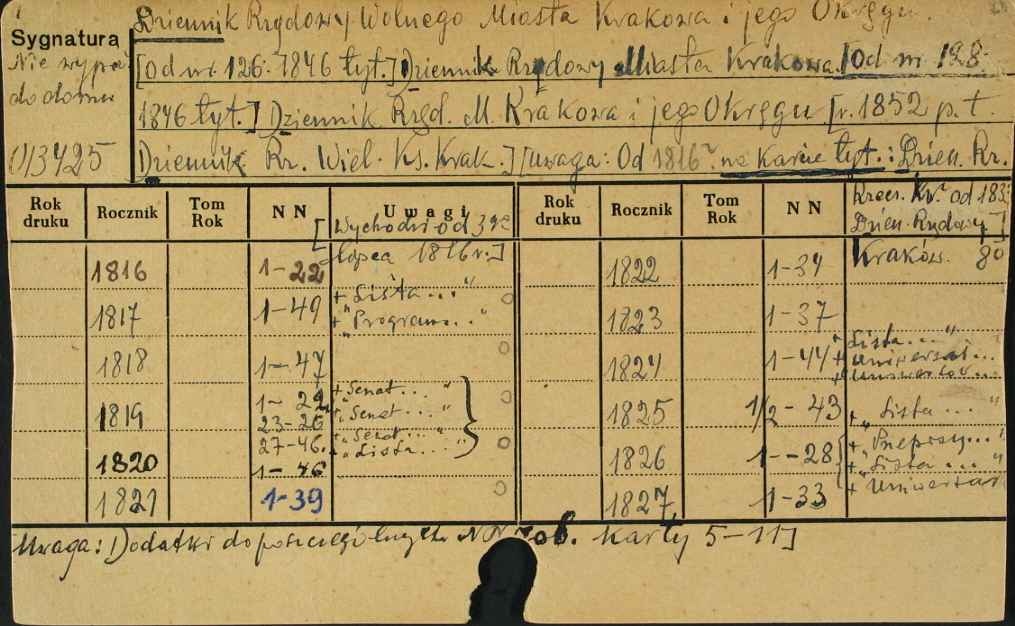 Dziennik Rządowy Wolnego Miasta Krakowa i jego Okręgu.
Sygnatura
[od nr. 126. 1846 tyt.] Dziennik Rządowy Miasta Krakowa. [Od nr 128.
do domu
1846 tyt.] Dziennik Rząd. M. Krakowa i jego Okręgu [r. 1852 p. t.
013425
Dziennik Rz. Wiel. Ks. Krak.] [uwaga: Od 1816 r. na karcie tyt.: Dzien. Rz.
Rok druku Rocznik Tom Rok NN Uwagi Rok druku Rocznik Tom Rok NN
Dzien. Rządowy]
[Wychodzi od
1816 r.]
Kraków. 80
1816 1-22 1822 1-34
+ "Lista..."
1817 1-49 + "Program..." 1823 1-37
1818 1-47 1824 1-44 + "Lista..."
+ Uniwersał...
1819 1- 22 + "Senat..." 1825 1/2-43 + "Lista..."
23-26 + "Senat..."
27-46. + "Senat..."
1820 1-46 + "Lista..." 1826 1--28
+ "Lista..."
1821 1-39 1827 1-33 + "Uniwersał
Uwaga: Dodatki do poszczególnych NN zob. karty 5-11]